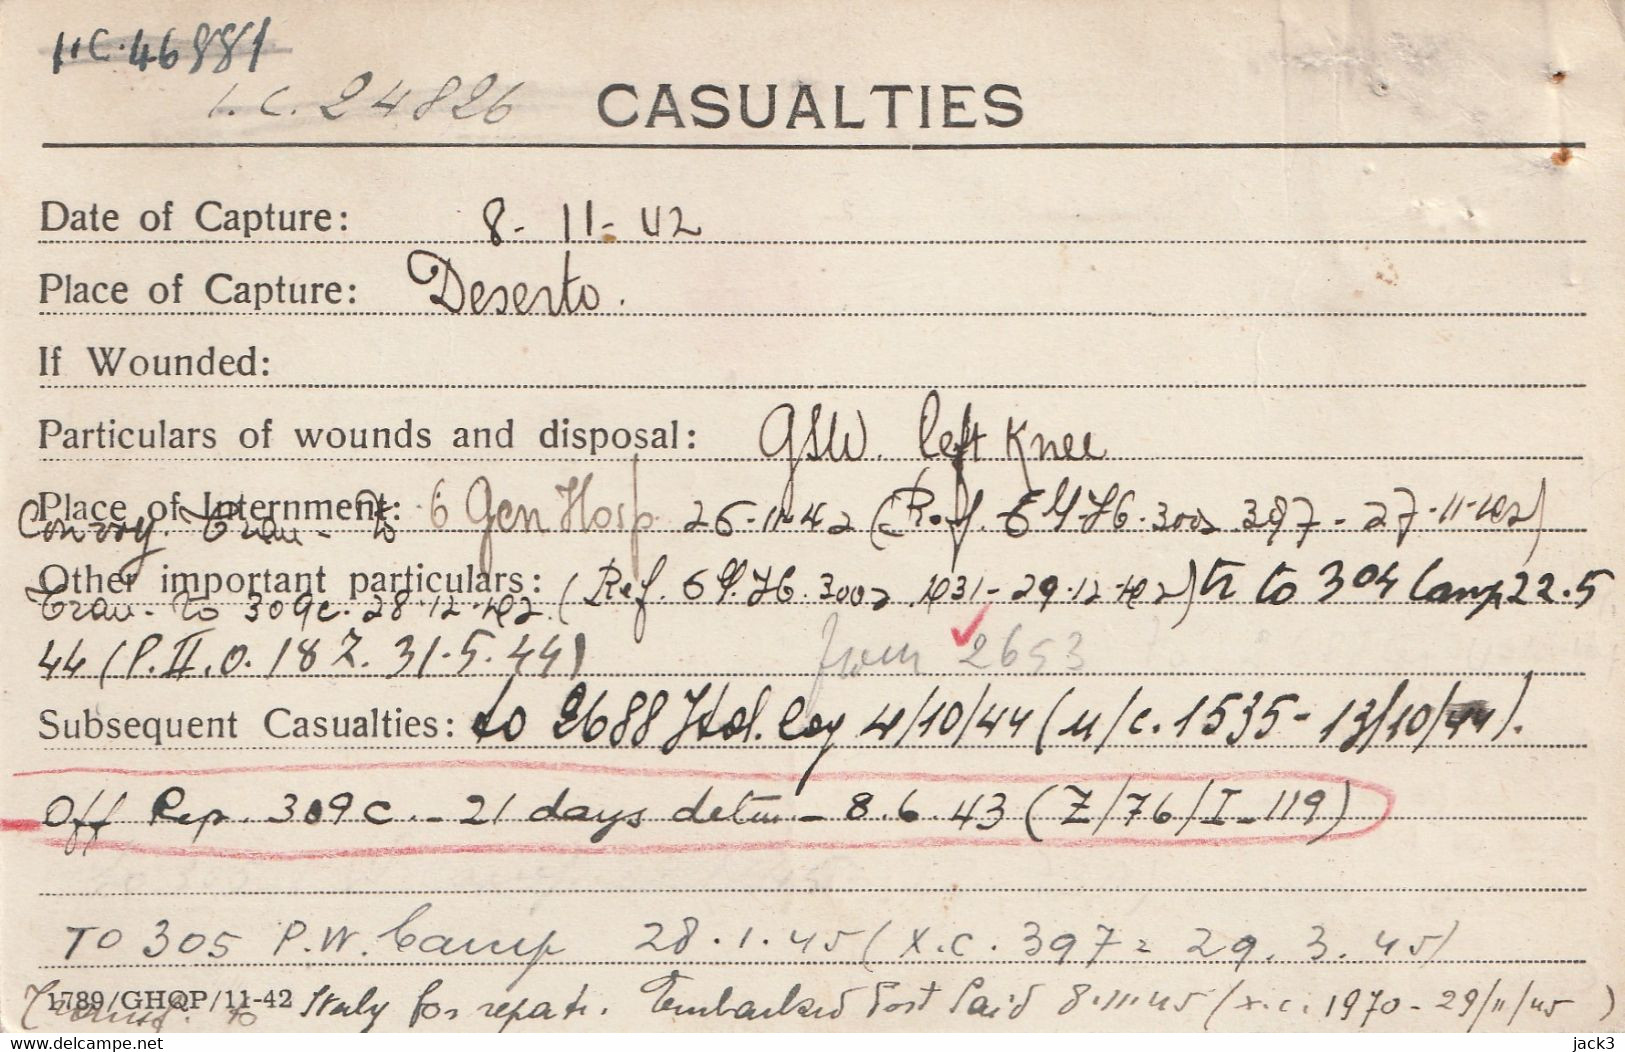 11C.46881
I.C. 24826
CASUALTIES
Date of Capture: 8-11-42
Place of Capture: Deserto.
If Wounded:
Particulars of wounds and disposal: GSW. left Knee
Place of Internment: 6 Gen Hosp 26-11-42 (Ref. 6 G.H. 3002 397 - 27-11-42)
Convoy. Tran - to
Other important particulars: (Ref. 6 G.H. 3002 - 29.12.42) tr to 304 Camp 22.5
Tran - to 309c. 28.12.42.
44 (P.II.O. 187. 31.5.44) from 2653
Subsequent Casualties: to 2688 Ital. Coy 4/10/44 (u/c. 1535 - 13/10/44).
Off Rep. 309 C. - 21 days detn - 8.6.43 (Z/76/I-119)
TO 305 P.W. Camp 28.1.45 (X.C. 397 = 29.3.45)
1789/GHQP/11-42
to Italy for repatr. Embarked Port Said 8.11.45 (x.c. 1970 - 29/11/45)
delcampe.net
jack3